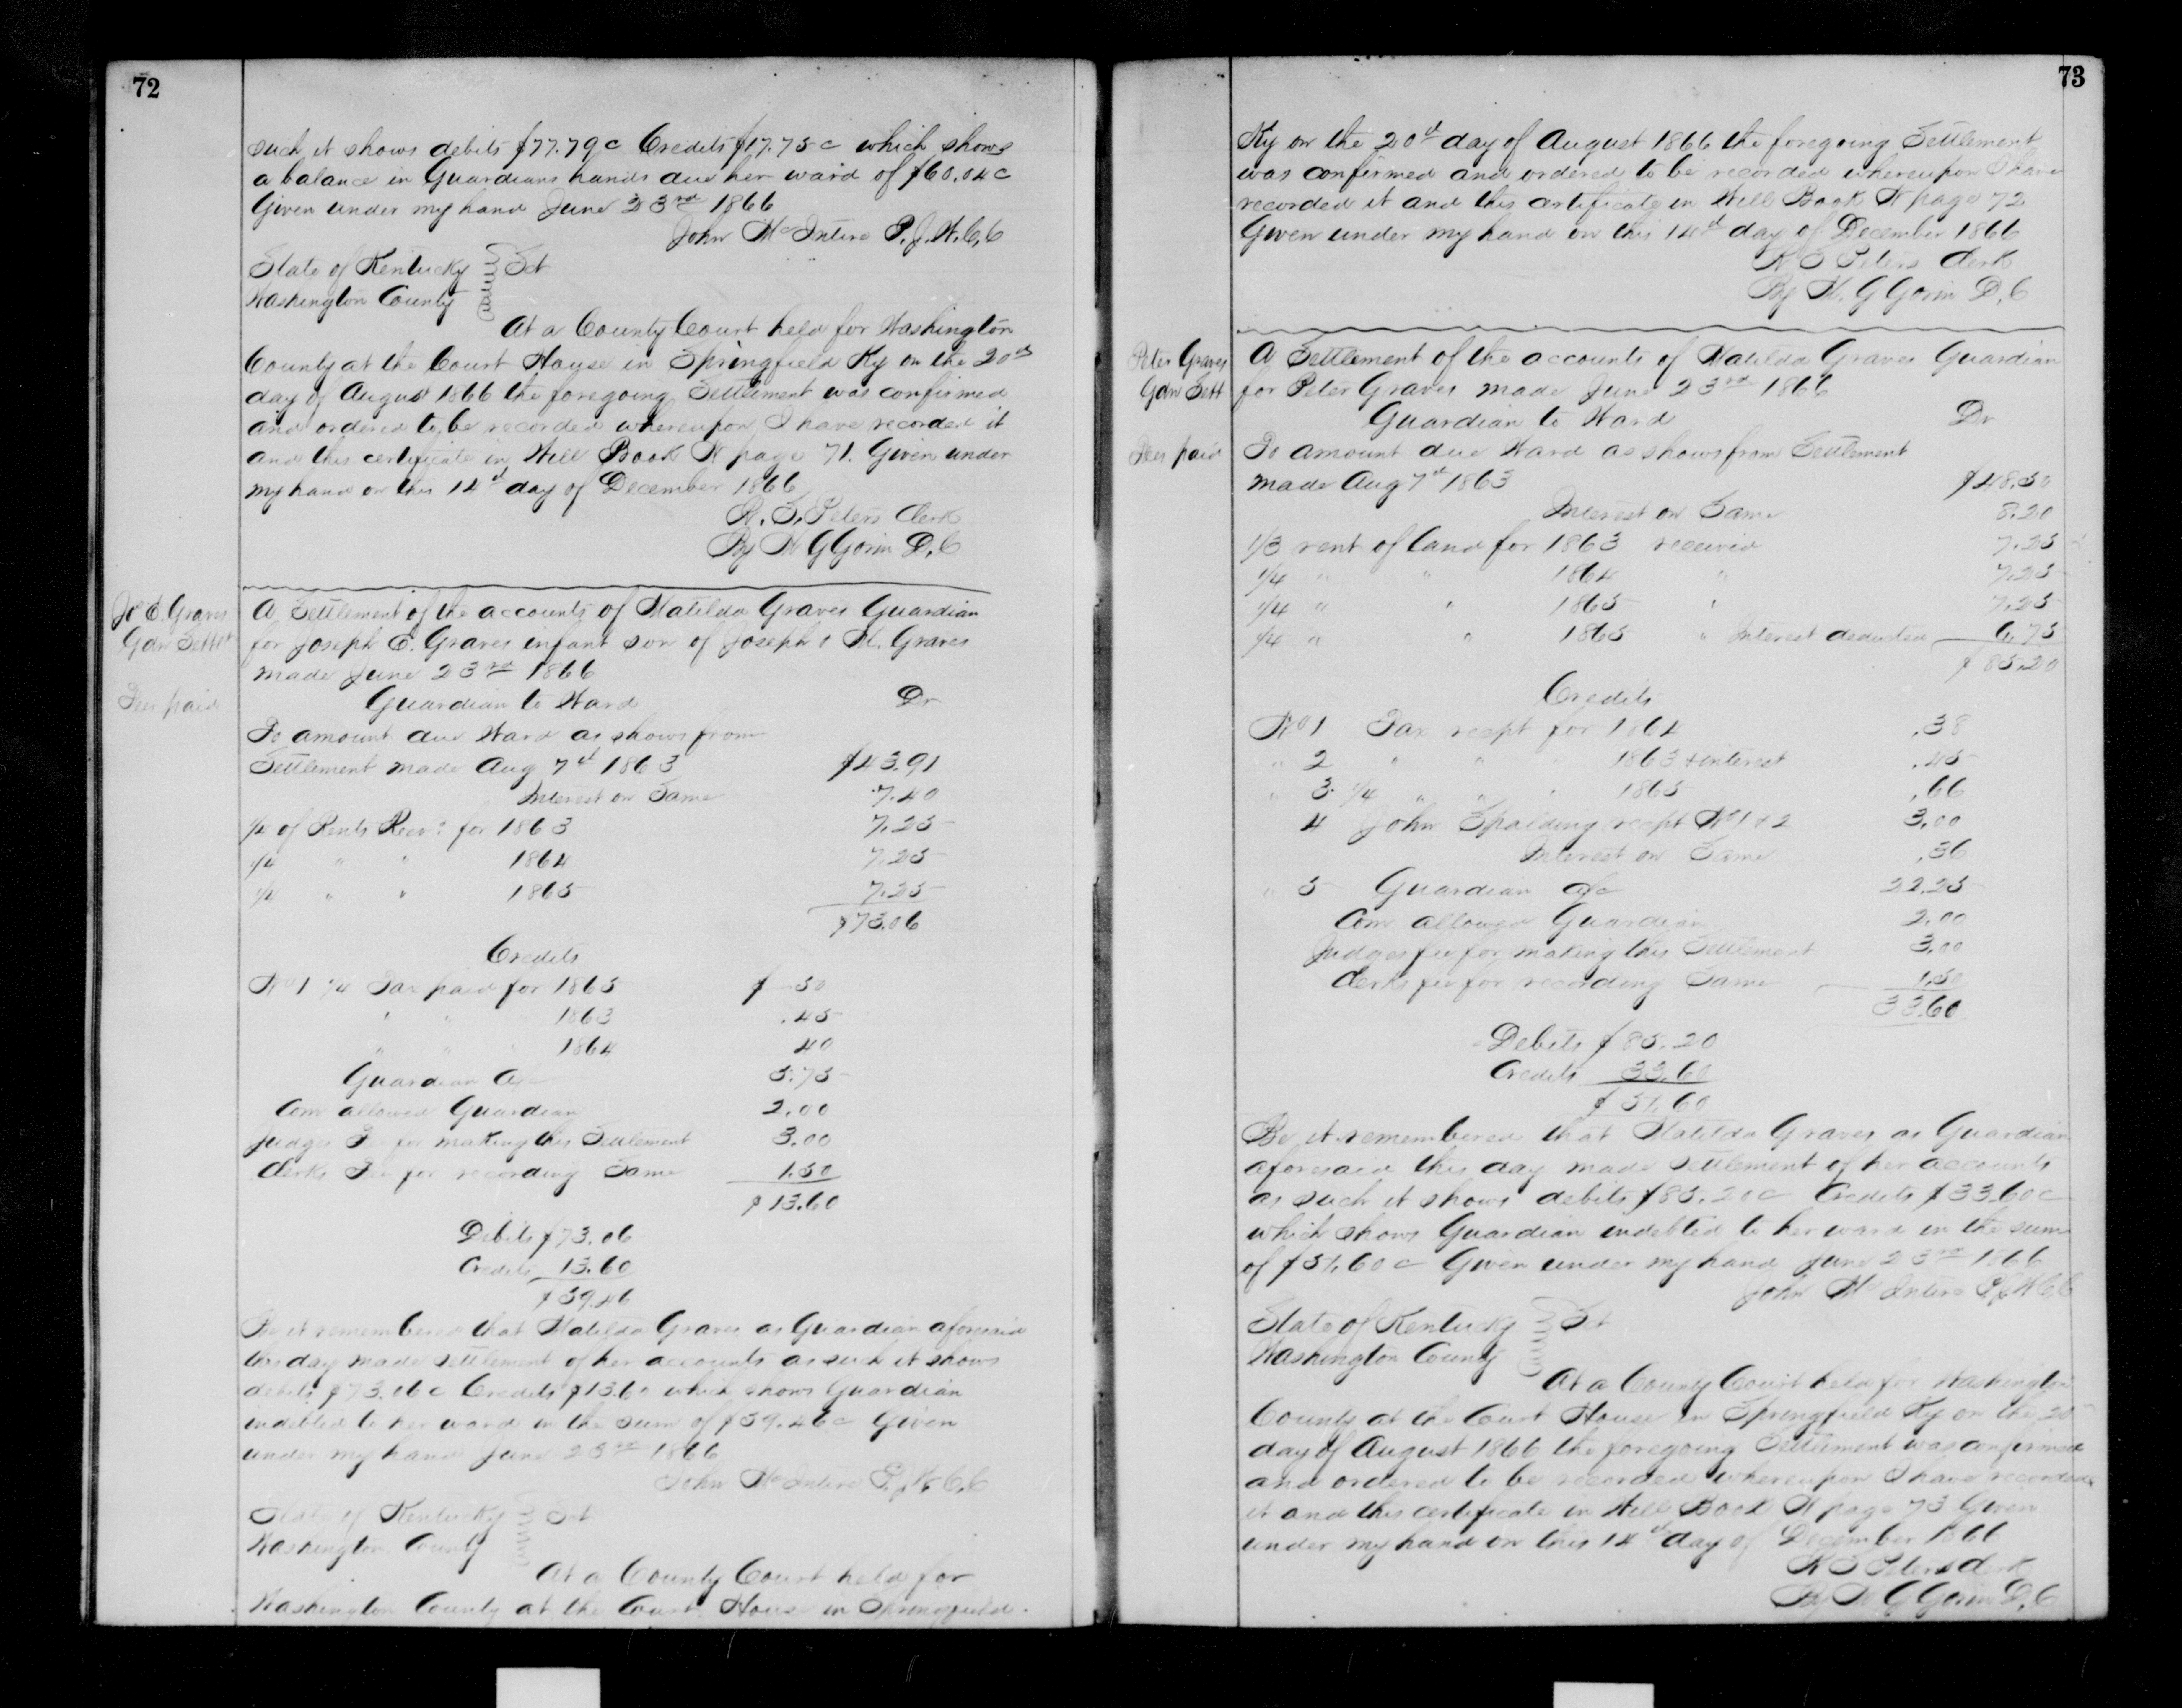 72
such it shows debits $77.79c Credits $17.75c which shows
a balance in Guardians hands due her ward of $60.04c
Given under my hand June 23rd 1866
John McIntire P.J.W.C.C
State of Kentucky } Sct
Washington County
At a County Court held for Washington
County at the Court House in Springfield Ky on the 20th
day of August 1866 the foregoing Settlement was confirmed
and ordered to be recorded whereupon I have recorded it
and this certificate in Will Book N page 71. Given under
my hand on this 14th day of December 1866
Peters Clerk
By W G Gorin D.C
Jo E. Graves
Gdn Settt
Fees paid
A Settlement of the accounts of Matilda Graves Guardian
for Joseph E. Graves infant son of Joseph & M. Graves
made June 23rd 1866
Guardian to Ward Dr
To amount due Ward as shows from
Settlement made Aug 7th 1863 $43.91
Interest on Same 7.40
1/4 of Rents Recd for 1863 7.25
1/4 " " 1864 7.25
1/4 " " 1865 7.25
$73.06
Credits
No 1 1/4 Tax paid for 1865 $ 50
" " " 1863 .45
" " " 1864 40
Guardian a/c 5.75
Com allowed Guardian 2.00
Judges Fee for making this Settlement 3.00
Clerks Fee for recording Same 1.50
$13.60
Debits $73.06
Credits 13.60
$59.46
Be it remembered that Matilda Graves as Guardian aforesaid
this day made settlement of her accounts as such it shows
debits $73.06c Credits $13.60 which shows Guardian
indebted to her ward in the sum of $59.46c Given
under my hand June 23rd 1866
John McIntire P.J.W.C.C
State of Kentucky } Sct
Washington County
At a County Court held for
Washington County at the Court House in Springfield
73
Ky on the 20th day of August 1866 the foregoing Settlement
was confirmed and ordered to be recorded whereupon I have
recorded it and this certificate in Will Book N page 72
Given under my hand on this 14th day of December 1866
Peters Clerk
By W. G Gorin D.C
Peter Graves
Gdn Sett
Fees paid
A Settlement of the accounts of Matilda Graves Guardian
for Peter Graves made June 23rd 1866
Guardian to Ward Dr
To amount due Ward as shows from Settlement
made Aug 7th 1863 $48.50
Interest on Same 8.20
1/3 rent of land for 1863 received 7.25
1/4 " " 1864 " 7.25
1/4 " " 1865 " 7.25
1/4 " " 1865 " Interest deducted 6.75
$85.20
Credits
No 1 Tax recpt for 1864 .38
" 2 " " " 1863 & interest .45
" 3 1/4 " " " 1865 .66
4 John Spalding recpt No 1 & 2 3.00
Interest on Same .36
" 5 Guardian a/c 22.25
Com allowed Guardian 2.00
Judges fee for making this Settlement 3.00
Clerks fee for recording Same 1.50
33.60
Debits $85.20
Credits 33.60
$51.60
Be it remembered that Matilda Graves as Guardian
aforesaid this day made settlement of her accounts
as such it shows debits $85.20c Credits $33.60c
which shows Guardian indebted to her ward in the sum
of $51.60c Given under my hand June 23rd 1866
John McIntire P.J.W.C.C
State of Kentucky } Sct
Washington County
At a County Court held for Washington
County at the Court House in Springfield Ky on the 20th
day of August 1866 the foregoing Settlement was confirmed
and ordered to be recorded whereupon I have recorded
it and this certificate in Will Book N page 73 Given
under my hand on this 14th day of December 1866
Peters Clerk
By W G Gorin D.C